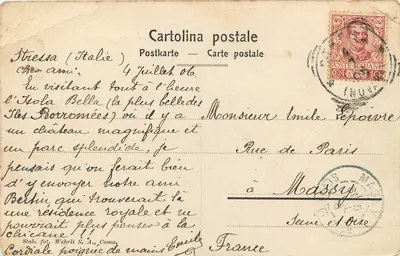 Cartolina postale
Postkarte — Carte postale
Stressa (Italie)
Cher ami. 4 Juillet 06
En visitant tout à l'heure
l'Isola Bella (la plus belle des
Iles Borromées) où il y a
un château magnifique et
un parc splendide, je
pensais qu'on ferait bien
d'y envoyer notre ami
Bertin, qui trouverait là
une résidence royale et ne
pourrait plus penser à la
chicane !!
Cordiale poignée de mains Emile
Stab. fot. Wehrli S. A., Como.
Monsieur Emile Lepoivre
Rue de Paris
à Massy
Seine et Oise
France
POSTE ITALIANE